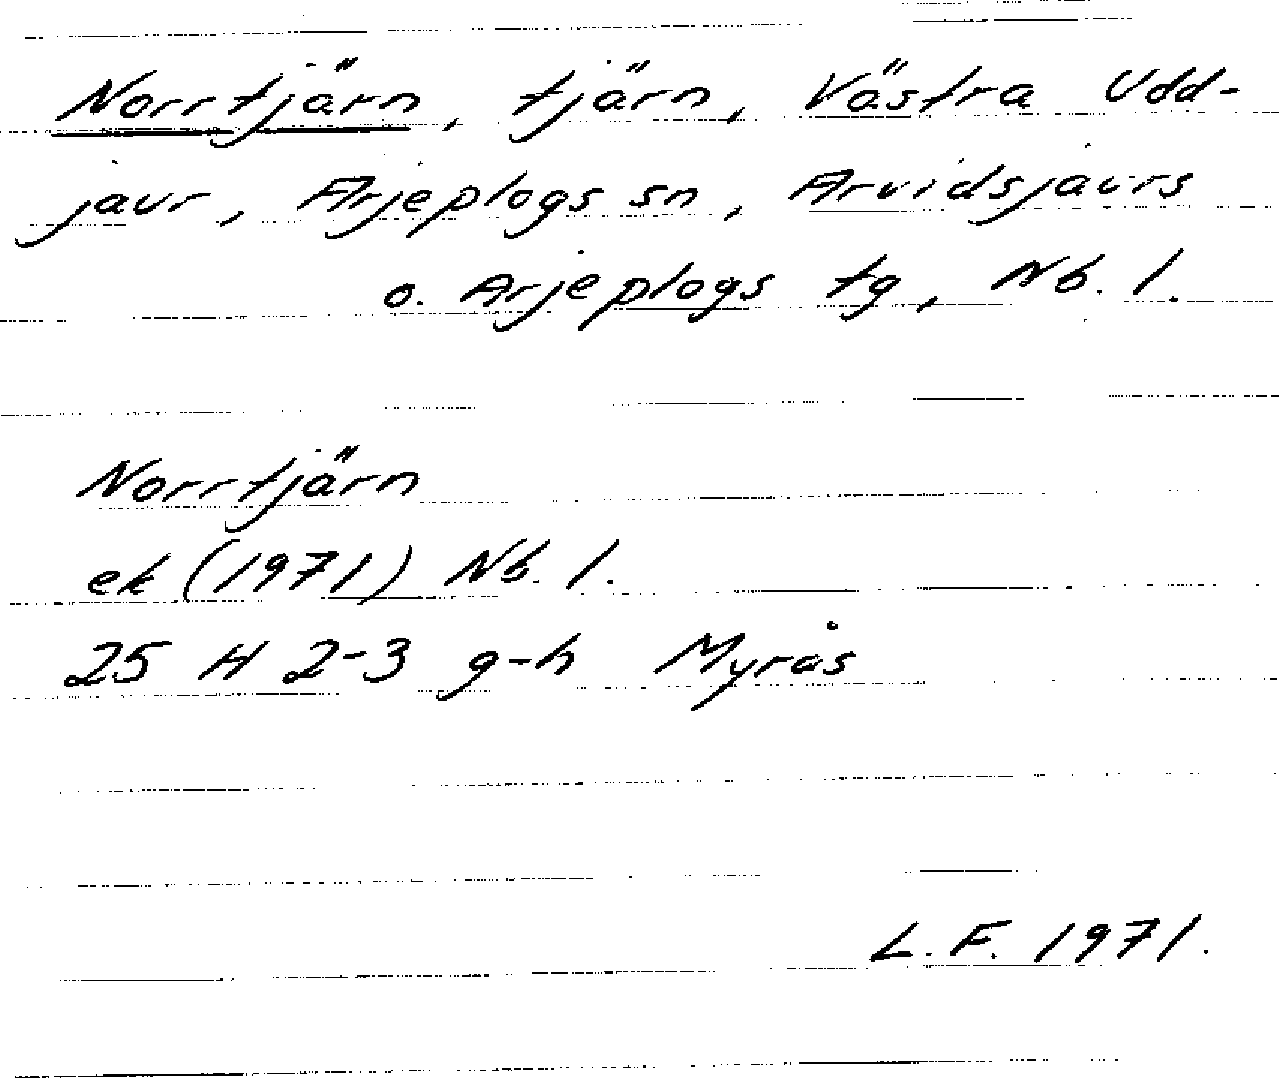 Norrtjärn, tjärn, Västra Udd-
jaur, Arjeplogs sn, Arvidsjaurs
o. Arjeplogs tg, Nb. l.
Norrtjärn
ek (1971) Nb. l.
25 H 2-3 g-h Myrås
L. F. 1971.